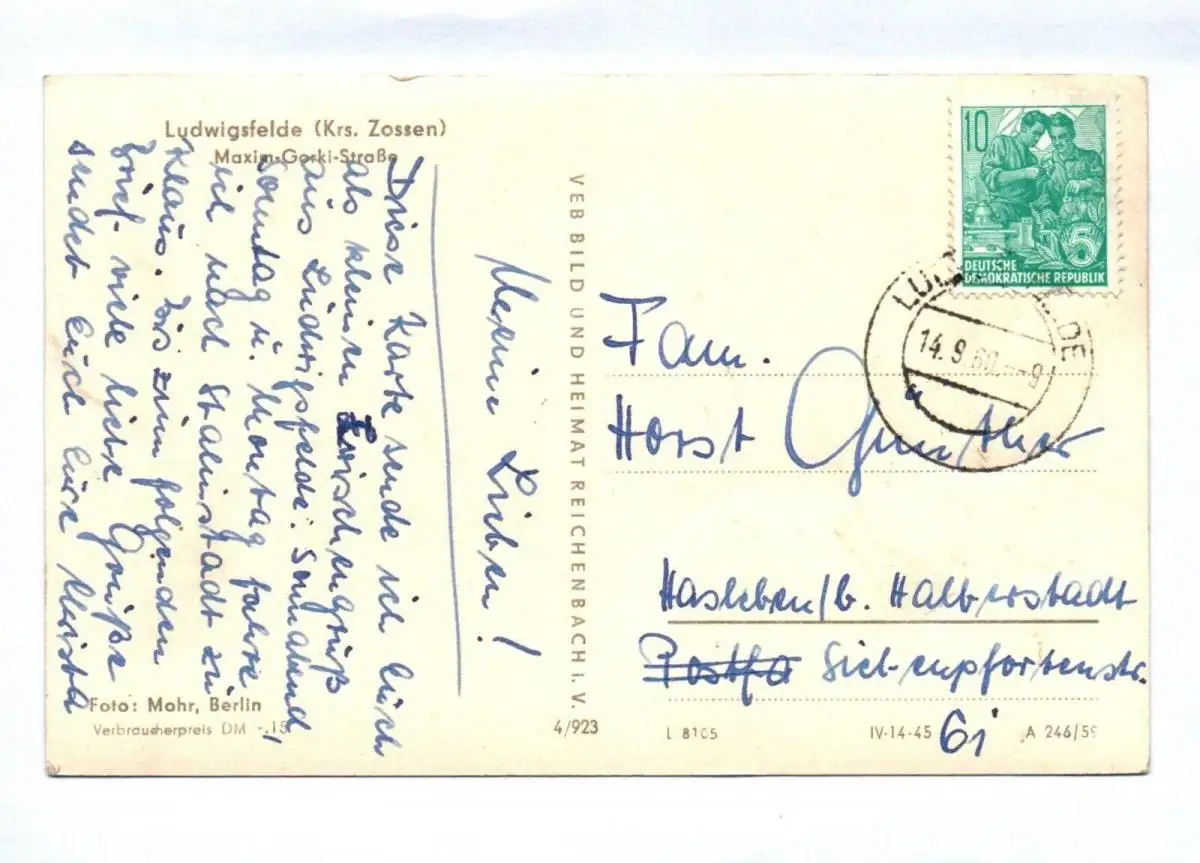 Ludwigsfelde (Krs. Zossen)
Maxim-Gorki-Straße
Meine Lieben!
Diese Karte sende ich Euch
als kleinen Zwischengruß
aus Ludwigsfelde. Sonnabend,
Sonntag u. Montag fahre,
ich nach Stalinstadt zu
Klaus. Bis zum folgenden
Brief viele liebe Grüße
sendet Euch Eure
Foto: Mohr, Berlin
Verbraucherpreis DM -.15
VEB BILD UND HEIMAT REICHENBACH i. V.
4/923
10
5
DEUTSCHE
DEMOKRATISCHE REPUBLIK
14.9.60.--9
Fam.
Horst Günther
Hasleben/b. Halberstadt
Postfa Siebenpfortenstr.
6i
L 8105
IV-14-45
A 246/59